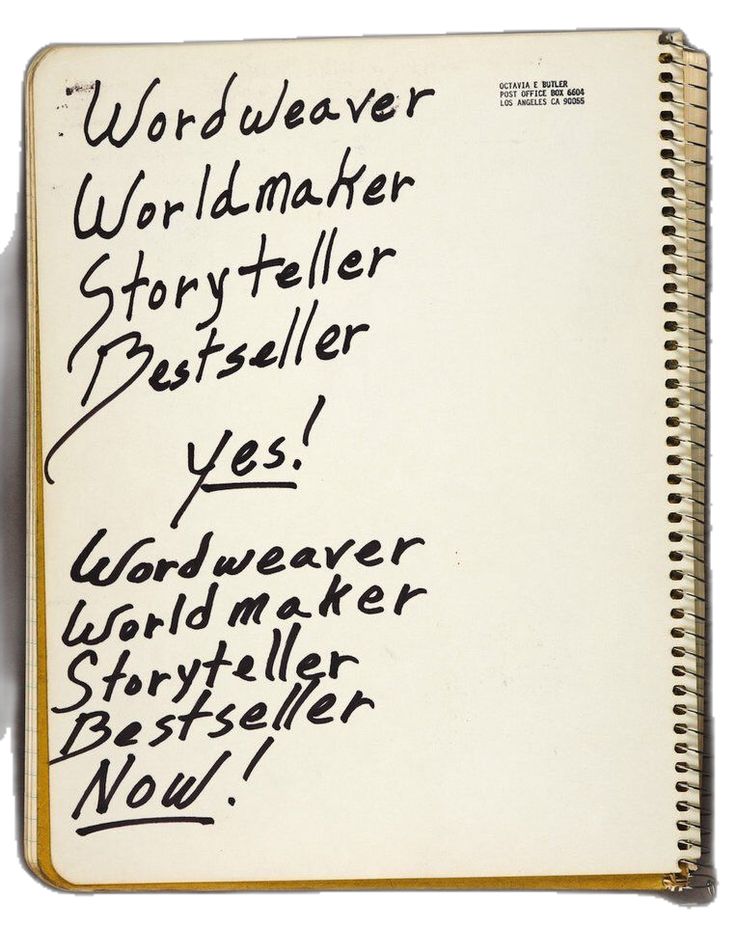 Wordweaver
OCTAVIA E BUTLER
POST OFFICE BOX 6604
LOS ANGELES CA 90055
Worldmaker
Storyteller
Bestseller
yes!
Wordweaver
Worldmaker
Storyteller
Bestseller
Now!